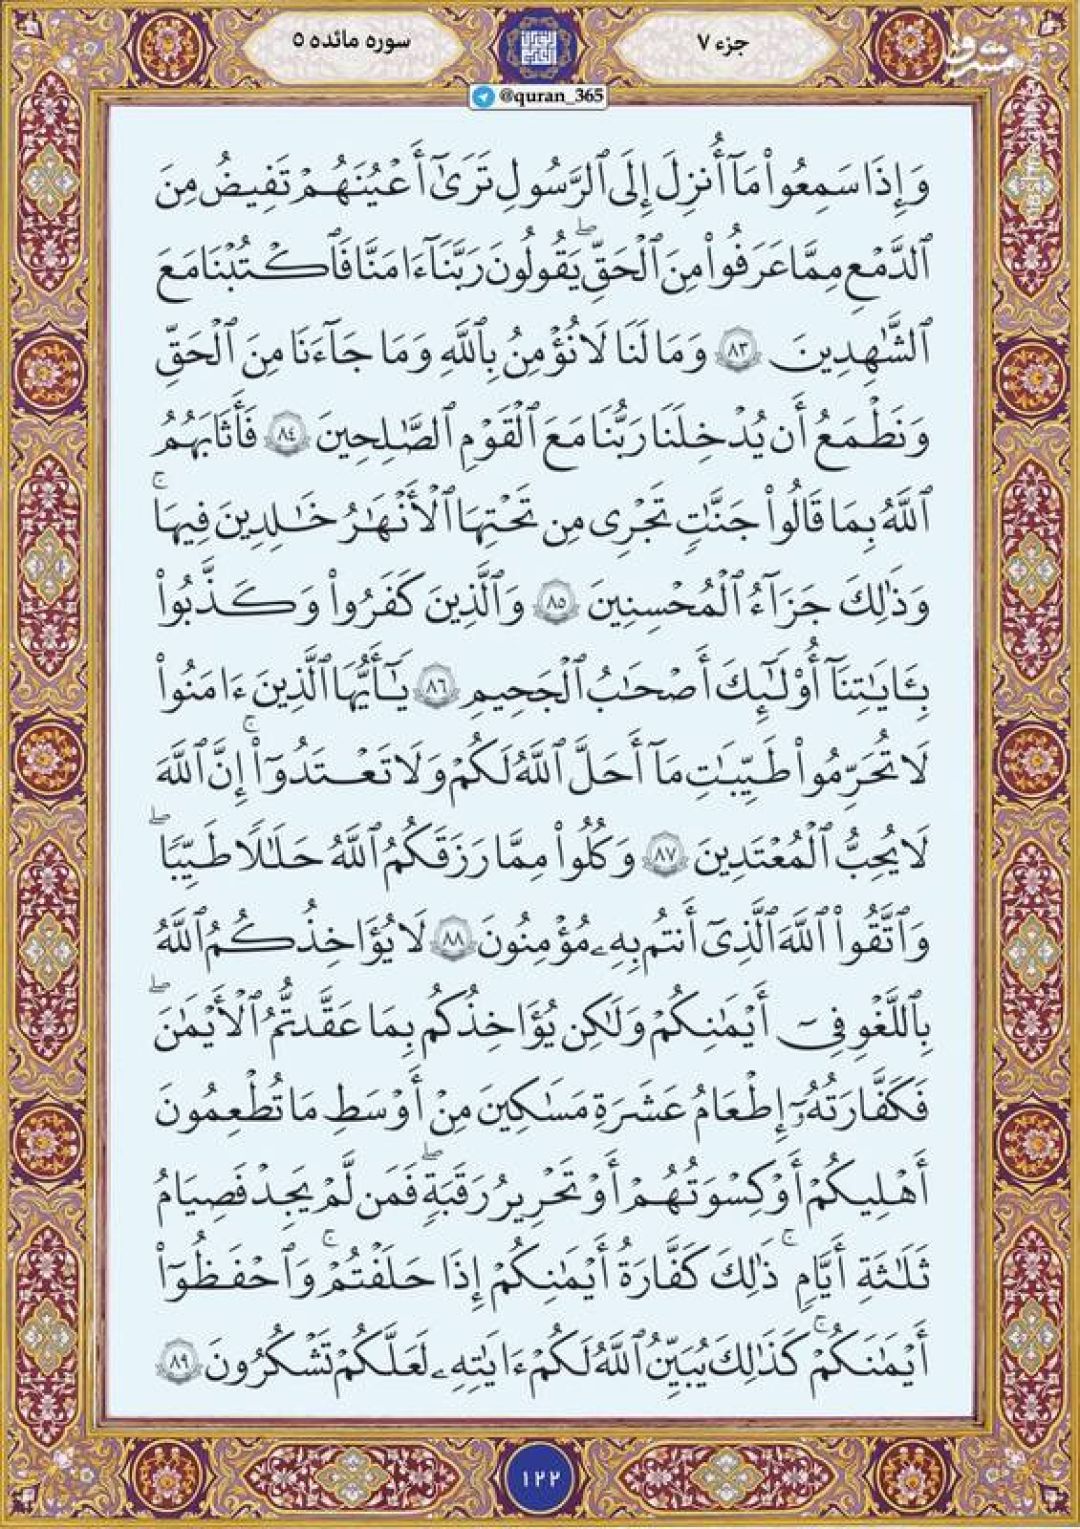 جزء ۷
سوره مائده ۵
@quran_365
وَإِذَا سَمِعُوا۟ مَآ أُنزِلَ إِلَى ٱلرَّسُولِ تَرَىٰٓ أَعْيُنَهُمْ تَفِيضُ مِنَ
ٱلدَّمْعِ مِمَّا عَرَفُوا۟ مِنَ ٱلْحَقِّ ۖ يَقُولُونَ رَبَّنَآ ءَامَنَّا فَٱكْتُبْنَا مَعَ
ٱلشَّـٰهِدِينَ ٨٣ وَمَا لَنَا لَا نُؤْمِنُ بِٱللَّهِ وَمَا جَآءَنَا مِنَ ٱلْحَقِّ
وَنَطْمَعُ أَن يُدْخِلَنَا رَبُّنَا مَعَ ٱلْقَوْمِ ٱلصَّـٰلِحِينَ ٨٤ فَأَثَـٰبَهُمُ
ٱللَّهُ بِمَا قَالُوا۟ جَنَّـٰتٍ تَجْرِى مِن تَحْتِهَا ٱلْأَنْهَـٰرُ خَـٰلِدِينَ فِيهَا ۚ
وَذَٰلِكَ جَزَآءُ ٱلْمُحْسِنِينَ ٨٥ وَٱلَّذِينَ كَفَرُوا۟ وَكَذَّبُوا۟
بِـَٔايَـٰتِنَآ أُو۟لَـٰٓئِكَ أَصْحَـٰبُ ٱلْجَحِيمِ ٨٦ يَـٰٓأَيُّهَا ٱلَّذِينَ ءَامَنُوا۟
لَا تُحَرِّمُوا۟ طَيِّبَـٰتِ مَآ أَحَلَّ ٱللَّهُ لَكُمْ وَلَا تَعْتَدُوٓا۟ ۚ إِنَّ ٱللَّهَ
لَا يُحِبُّ ٱلْمُعْتَدِينَ ٨٧ وَكُلُوا۟ مِمَّا رَزَقَكُمُ ٱللَّهُ حَلَـٰلًا طَيِّبًا ۚ
وَٱتَّقُوا۟ ٱللَّهَ ٱلَّذِىٓ أَنتُم بِهِۦ مُؤْمِنُونَ ٨٨ لَا يُؤَاخِذُكُمُ ٱللَّهُ
بِٱللَّغْوِ فِىٓ أَيْمَـٰنِكُمْ وَلَـٰكِن يُؤَاخِذُكُم بِمَا عَقَّدتُّمُ ٱلْأَيْمَـٰنَ ۖ
فَكَفَّـٰرَتُهُۥٓ إِطْعَامُ عَشَرَةِ مَسَـٰكِينَ مِنْ أَوْسَطِ مَا تُطْعِمُونَ
أَهْلِيكُمْ أَوْ كِسْوَتُهُمْ أَوْ تَحْرِيرُ رَقَبَةٍ ۖ فَمَن لَّمْ يَجِدْ فَصِيَامُ
ثَلَـٰثَةِ أَيَّامٍ ۚ ذَٰلِكَ كَفَّـٰرَةُ أَيْمَـٰنِكُمْ إِذَا حَلَفْتُمْ ۚ وَٱحْفَظُوٓا۟
أَيْمَـٰنَكُمْ ۚ كَذَٰلِكَ يُبَيِّنُ ٱللَّهُ لَكُمْ ءَايَـٰتِهِۦ لَعَلَّكُمْ تَشْكُرُونَ ٨٩
١٢٢